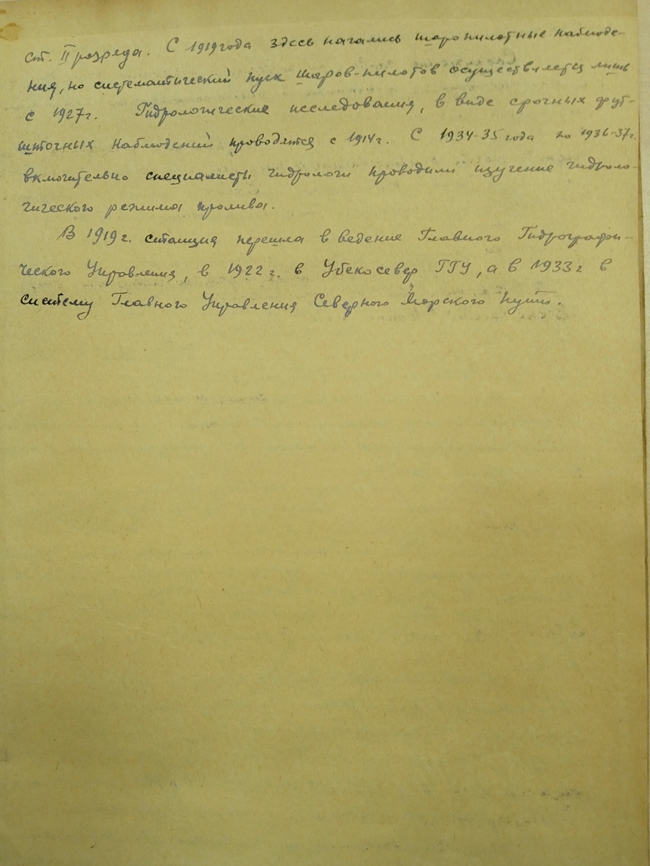 ст. II разряда. С 1919 года здесь начались шаропилотные наблюде-
ния, но систематический пуск шаров-пилотов осуществляется лишь
с 1927 г. Гидрологические исследования, в виде срочных фут-
шточных наблюдений проводятся с 1914 г. С 1934-35 года по 1936-37 г.
включительно специалисты гидрологи проводили изучение гидроло-
гического режима пролива.
В 1919 г. станция перешла в ведение Главного Гидрографи-
ческого Управления, в 1922 г. в Убекосевер ГГУ, а в 1933 г в
систему Главного Управления Северного Морского Пути.